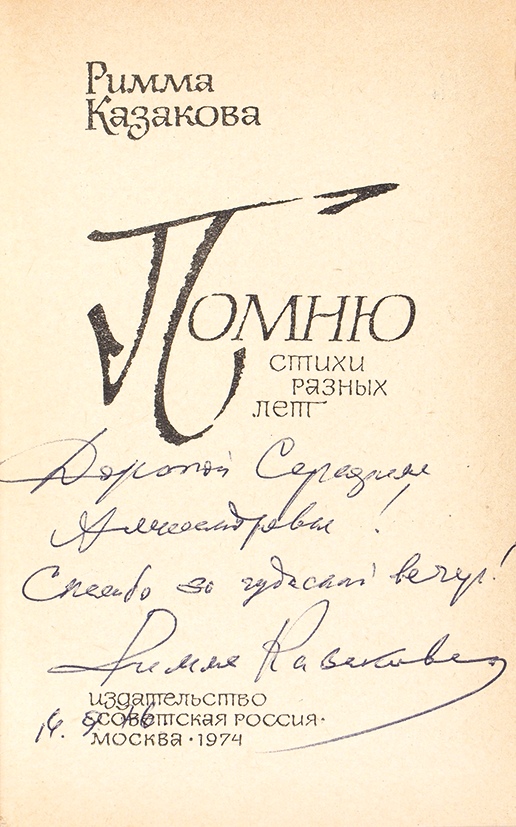 Римма
Казакова
Помню
стихи
разных
лет
Дорогой
Александровне!
Спасибо за чудесный вечер!
Римма Казакова
издательство
„советская россия·
москва · 1974